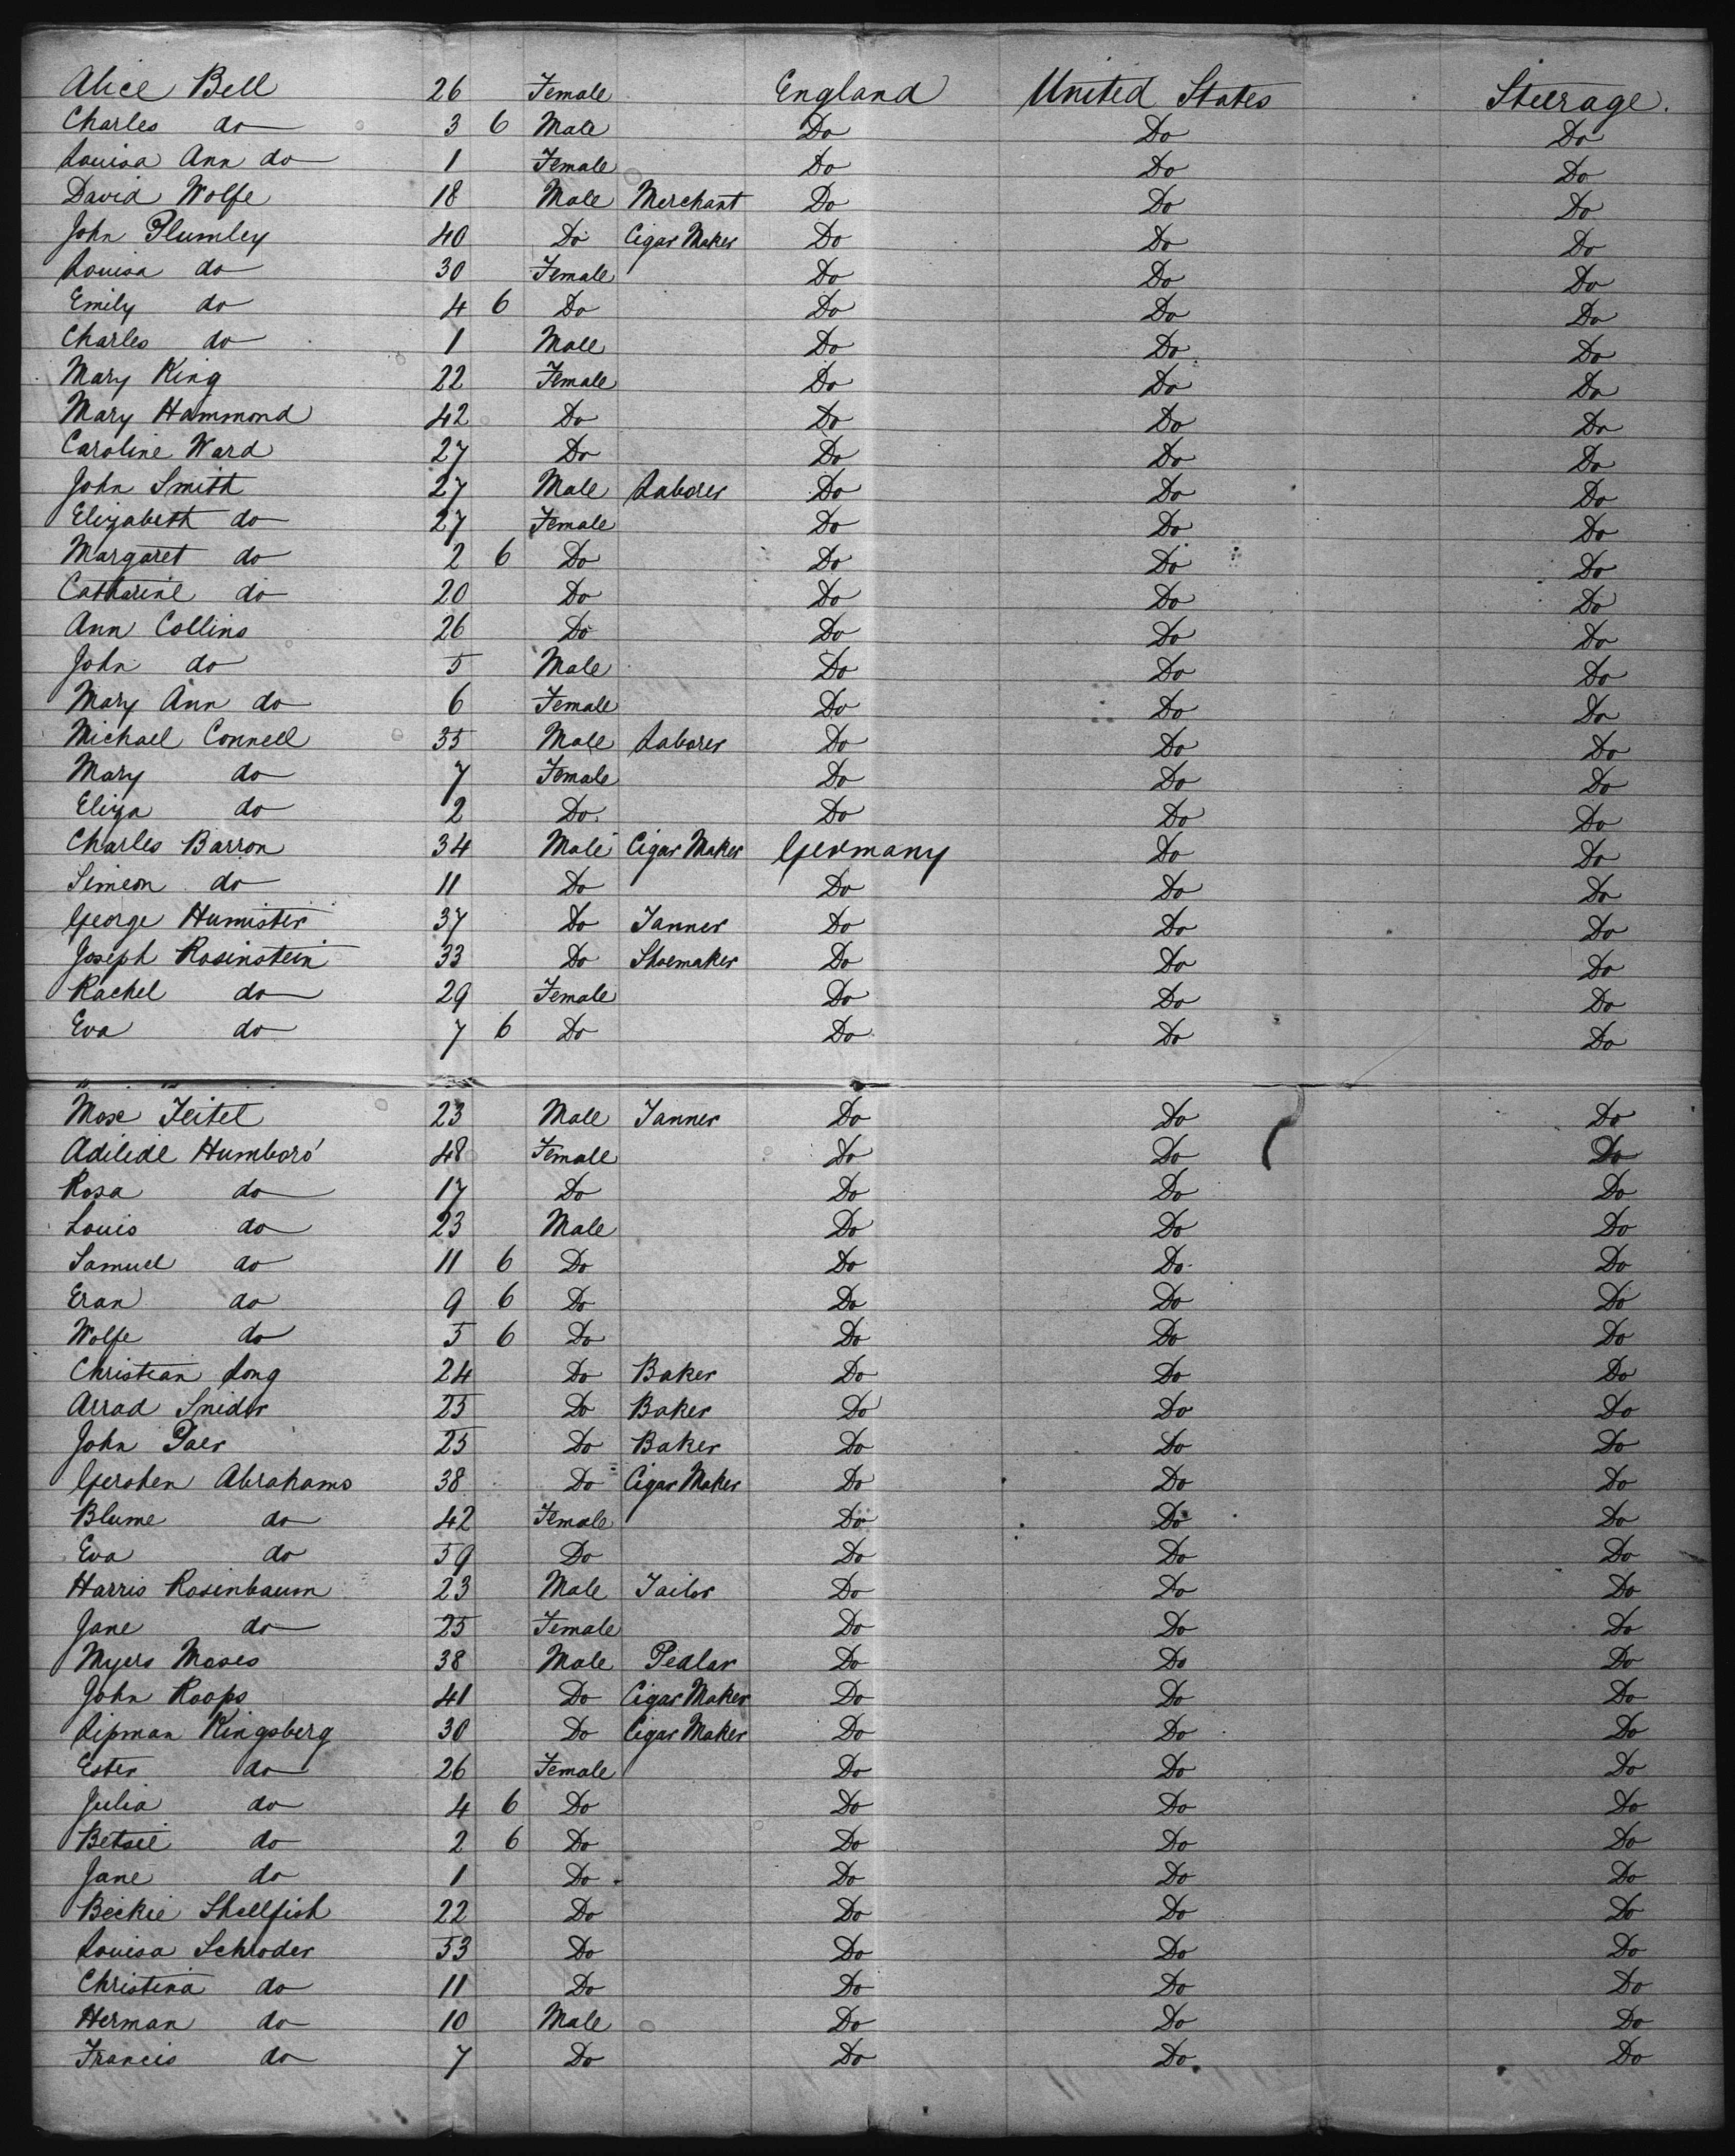 Alice Bell 26 Female England United States Steerage.
Charles do 3 6 Male Do Do Do
Louisa Ann do 1 Female Do Do Do
David Wolfe 18 Male Merchant Do Do Do
John Plumley 40 Do Cigar Maker Do Do Do
Louisa do 30 Female Do Do Do
Emily do 4 6 Do Do Do Do
Charles do 1 Male Do Do Do
Mary King 22 Female Do Do Do
Mary Hammond 42 Do Do Do Do
Caroline Ward 27 Do Do Do Do
John Smith 27 Male Laborer Do Do Do
Elizabeth do 27 Female Do Do Do
Margaret do 2 6 Do Do Do Do
Catharine do 20 Do Do Do Do
Ann Collins 26 Do Do Do Do
John do 5 Male Do Do Do
Mary Ann do 6 Female Do Do Do
Michael Connell 35 Male Laborer Do Do Do
Mary do 7 Female Do Do Do
Eliza do 2 Do Do Do Do
Charles Barron 34 Male Cigar Maker Germany Do Do
Simeon do 11 Do Do Do Do
George Humister 37 Do Tanner Do Do Do
Joseph Rosinstein 33 Do Shoemaker Do Do Do
Rachel do 29 Female Do Do Do
Eva do 7 6 Do Do Do Do
Max Teitel 23 Male Tanner Do Do Do
Adilide 48 Female Do Do Do
Rosa do 17 Do Do Do Do
Louis do 23 Male Do Do Do
Samuel do 11 6 Do Do Do Do
Eran do 9 6 Do Do Do Do
Wolfe do 5 6 Do Do Do Do
Christian Long 24 Do Baker Do Do Do
Arrad Snider 25 Do Baker Do Do Do
John Paer 25 Do Baker Do Do Do
Gershen Abrahams 38 Do Cigar Maker Do Do Do
Blume do 42 Female Do Do Do
Eva do 59 Do Do Do Do
Harris Rosinbaum 23 Male Tailor Do Do Do
Jane do 25 Female Do Do Do
Myers Moses 38 Male Pedlar Do Do Do
John Roops 41 Do Cigar Maker Do Do Do
Lipman Kingsberg 30 Do Cigar Maker Do Do Do
Ester do 26 Female Do Do Do
Julia do 4 6 Do Do Do Do
Betsie do 2 6 Do Do Do Do
Jane do 1 Do Do Do Do
Beckie Shellfish 22 Do Do Do Do
Louisa Schroder 53 Do Do Do Do
Christina do 11 Do Do Do Do
Herman do 10 Male Do Do Do
Francis do 7 Do Do Do Do